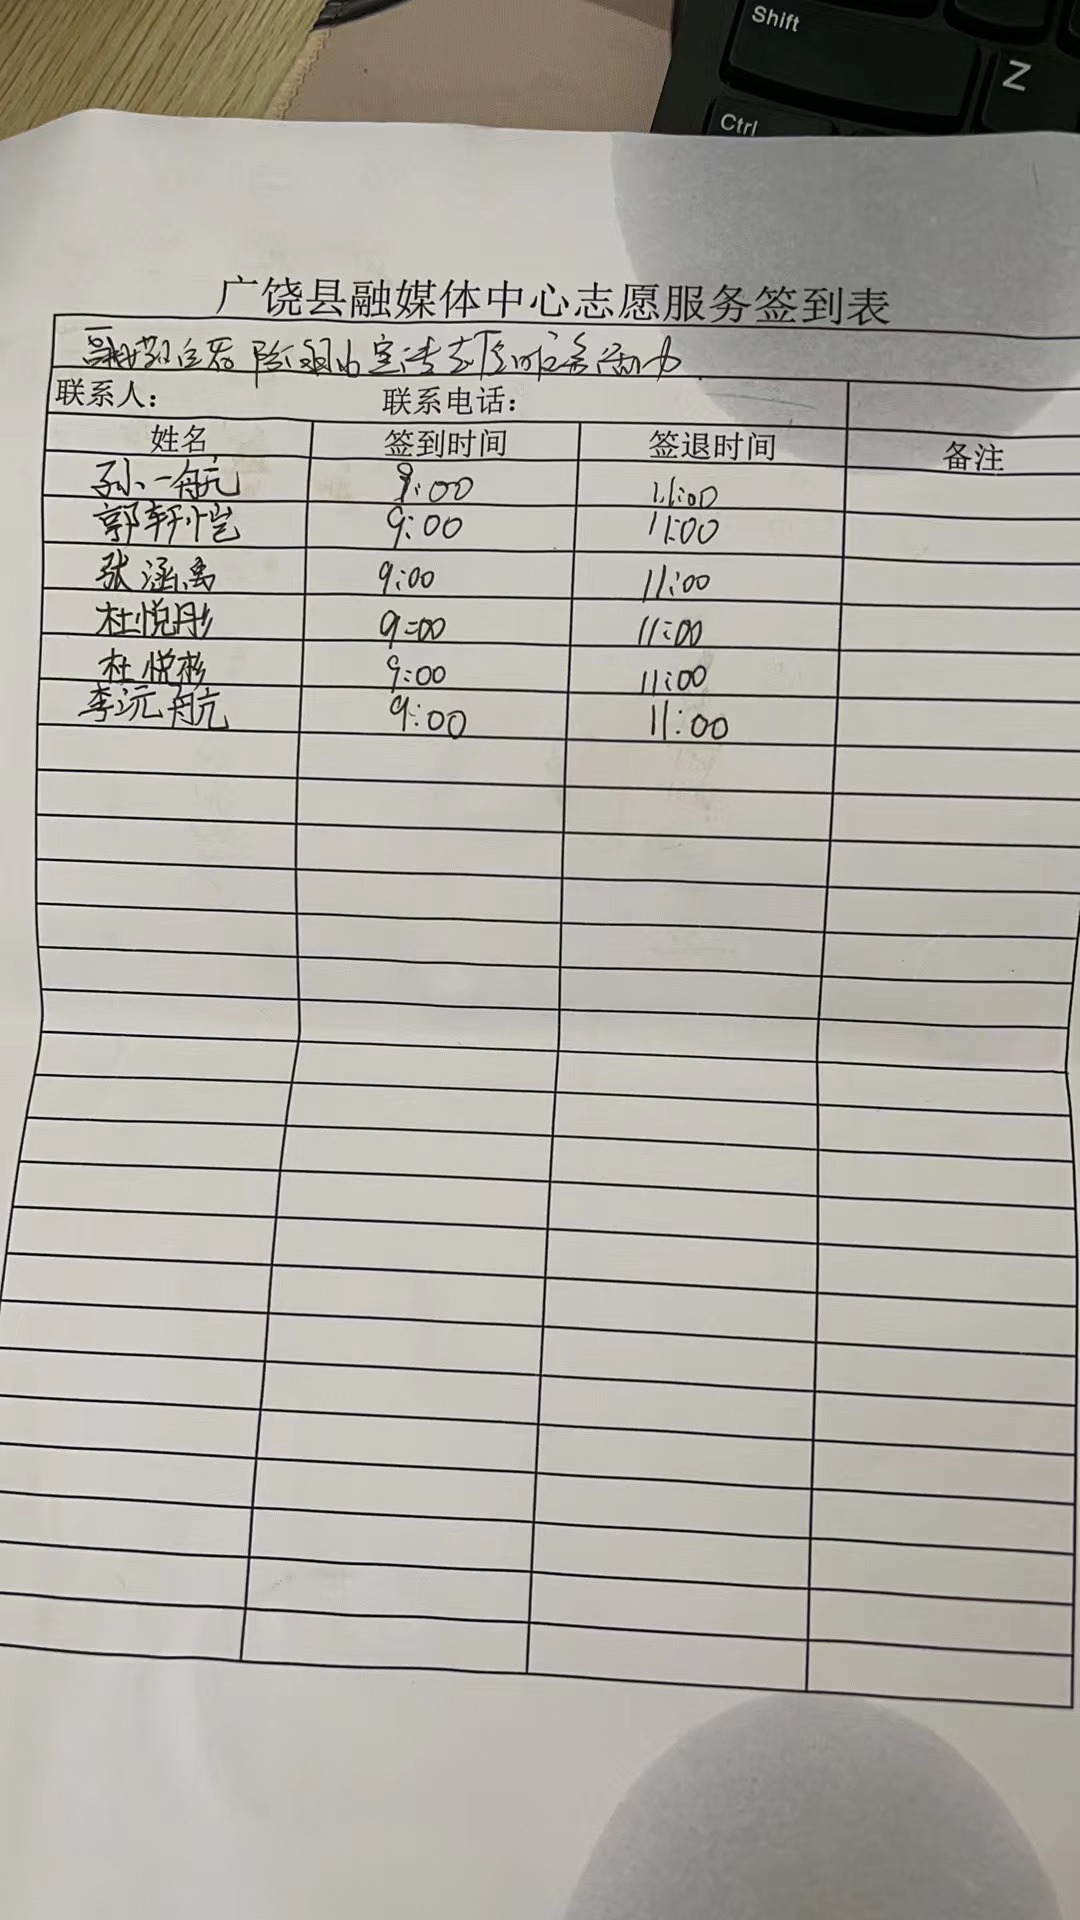 Shift
Z
Ctrl
广饶县融媒体中心志愿服务签到表
志愿服务活动
联系人： 联系电话：
姓名 签到时间 签退时间 备注
孙一航 9:00 11:00
郭轩恺 9:00 11:00
张涵禹 9:00 11:00
杜悦彤 9:00 11:00
杜悦杉 9:00 11:00
李沅航 9:00 11:00